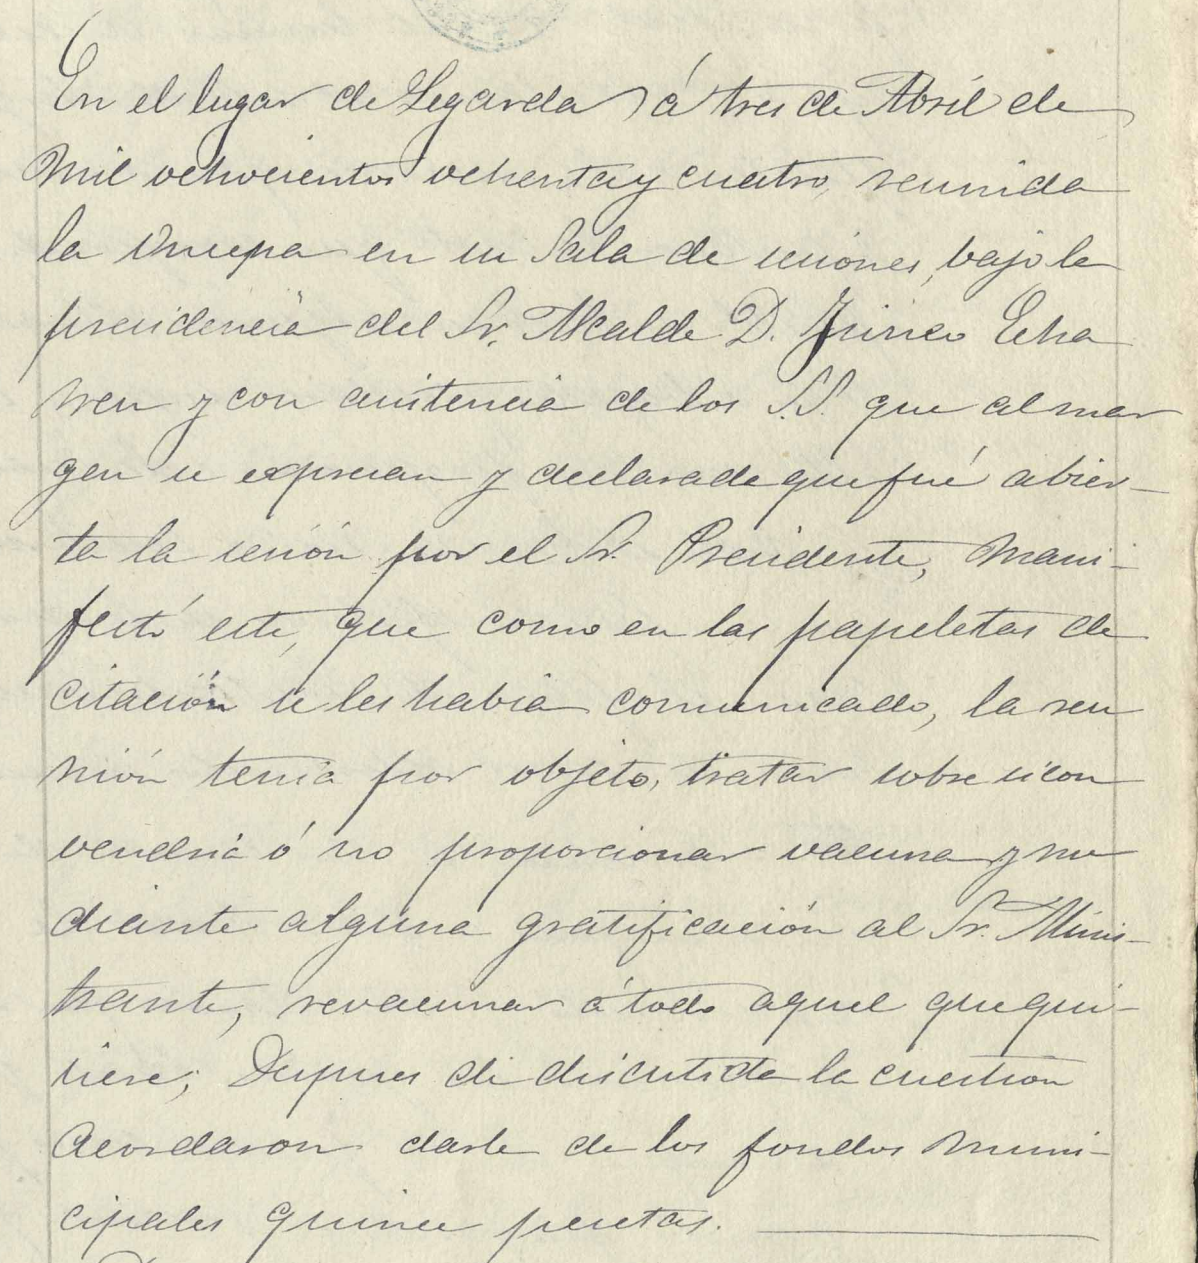 En el lugar de Legarda á tres de Abril de
Mil ochocientos ochenta y cuatro, reunida
la en su Sala de sesiones, bajo la
presidencia del Sr. Alcalde D. Echa
rren y con asistencia de los S.S. que al mar
gen se expresan y declarada que fué abier-
ta la sesión por el Sr. Presidente, mani-
festó este, que como en las papeletas de
citación se les habia comunicado, la reu
nión tenia por objeto, tratar sobre si con
vendria ó no proporcionar vacuna y me
diante alguna gratificación al Sr. Minis-
trante, revacunar á todo aquel que qui-
siere; Despues de discutida la cuestion
Acordaron darle de los fondos muni-
cipales quince pesetas.